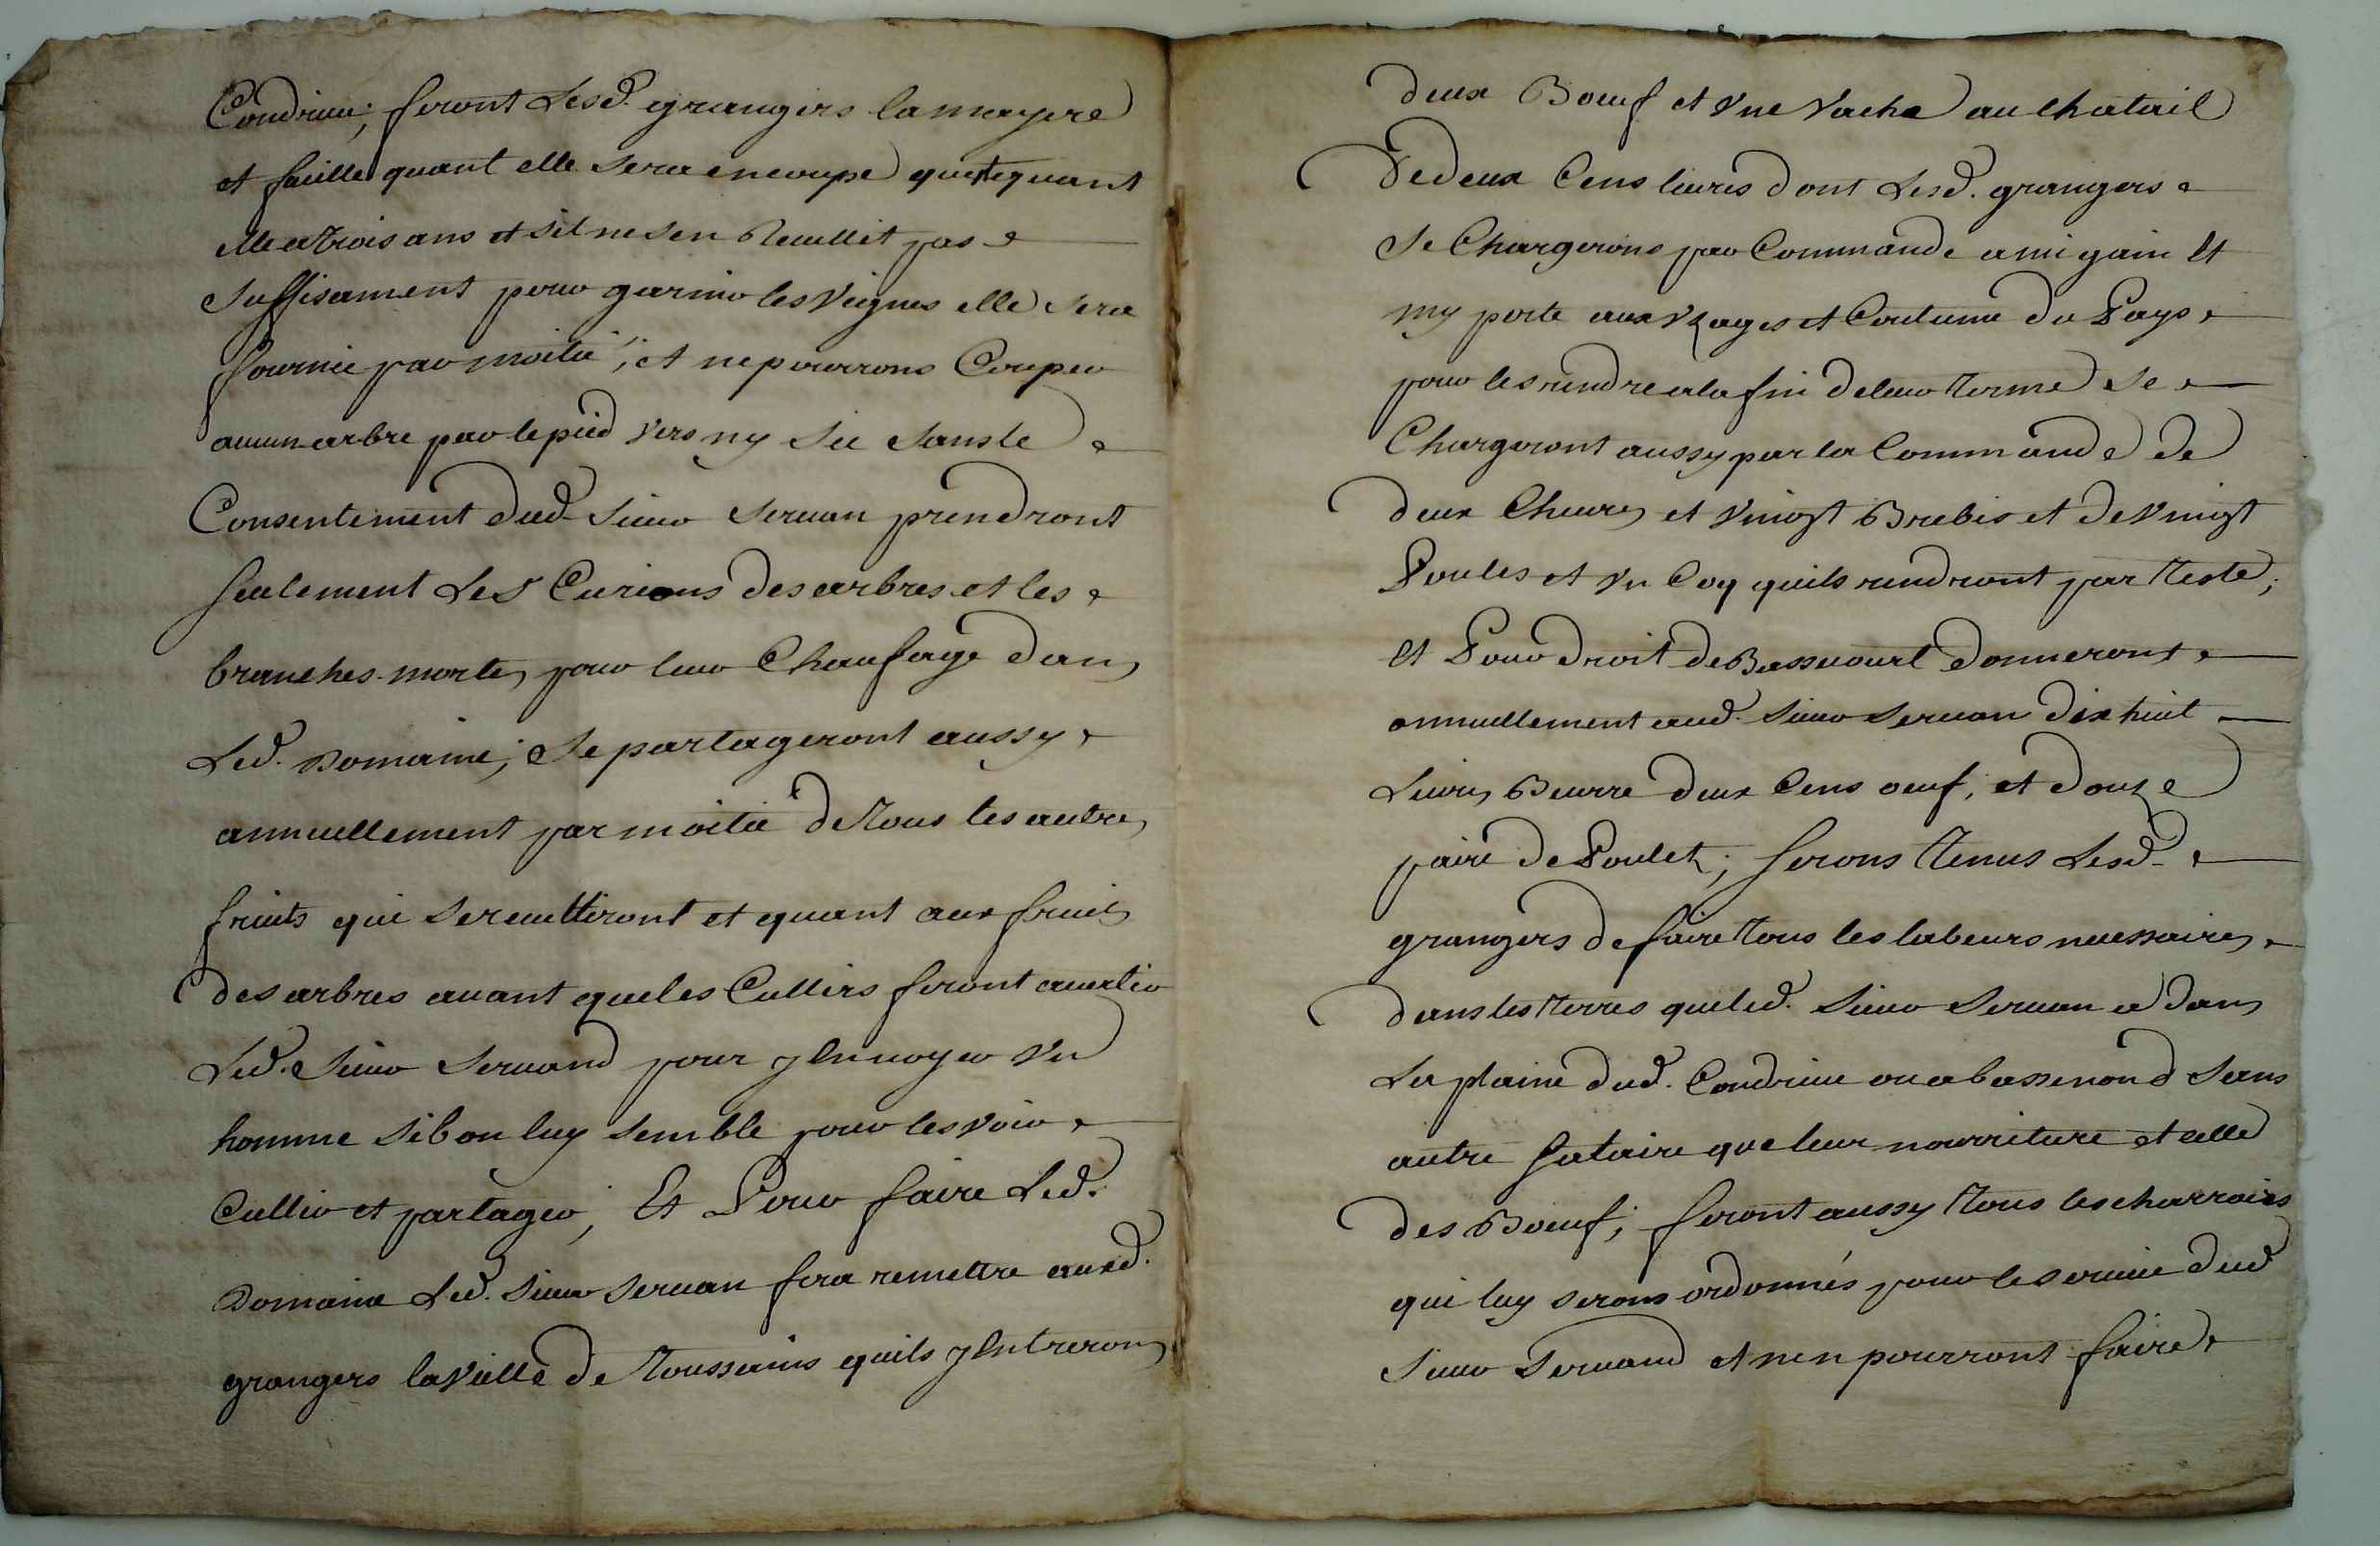 Condrieu; feront Lesd. grangers la mayere
et faille quant elle sera en coupe quest quant
elle a trois ans et sil ne sen Reculliet pas
suffisament pour garnir les Vignes elle sera
fournie par moitié; et ne pourrons Couper
aucun arbre par le pied vers ny sec sans le
Consentement dud. sieur seruan prendront
seulement Les Curions des arbres et les
branches mortes pour leur Chaufage dans
Led. Domaine; se partageront aussy
annuellement par moitié de Tous les autres
fruits qui se recuelliront et quant aux fruits
des arbres auant que les Cullirs feront auertir
Led. Sieur Seruand pour y Enuoyer vn
homme si bon luy semble pour les voir
Cullir et partager; Et Pour faire Led.
Domaine Led. sieur seruan fera remettre ausd.
grangers la Veille de Toussains quils y Entreron
deux Boeuf et vne Vache au chatail
De deux Cens liures dont Lesd. grangers
se Chargerons par Commande a mi gain Et
my perte aux Vzages et Coutume du Pays
pour les rendre a la fin de leur Terme se
Chargeront aussy par la Commande de
deux Cheures et vingt Brebis et de vingt
Poules et vn Coq quils rendront par Teste;
Et Pour droit de Bassecourt donneront
annuellement aud. sieur seruan dix huit
Liures Beurre deux Cens oeuf, et douze
paire de Poulet; serons Tenus Lesd.
grangers de faire Tous les labeurs necessaires
dans les Terres que led. sieur seruan a dans
La plaine dud. Condrieu ou a bassenond sans
autre salaire que leur nourriture et celle
des Boeuf; feront aussy Tous les charrois
qui luy serons ordonnés pour le seruice dud
sieur Seruand et nen pourront faire